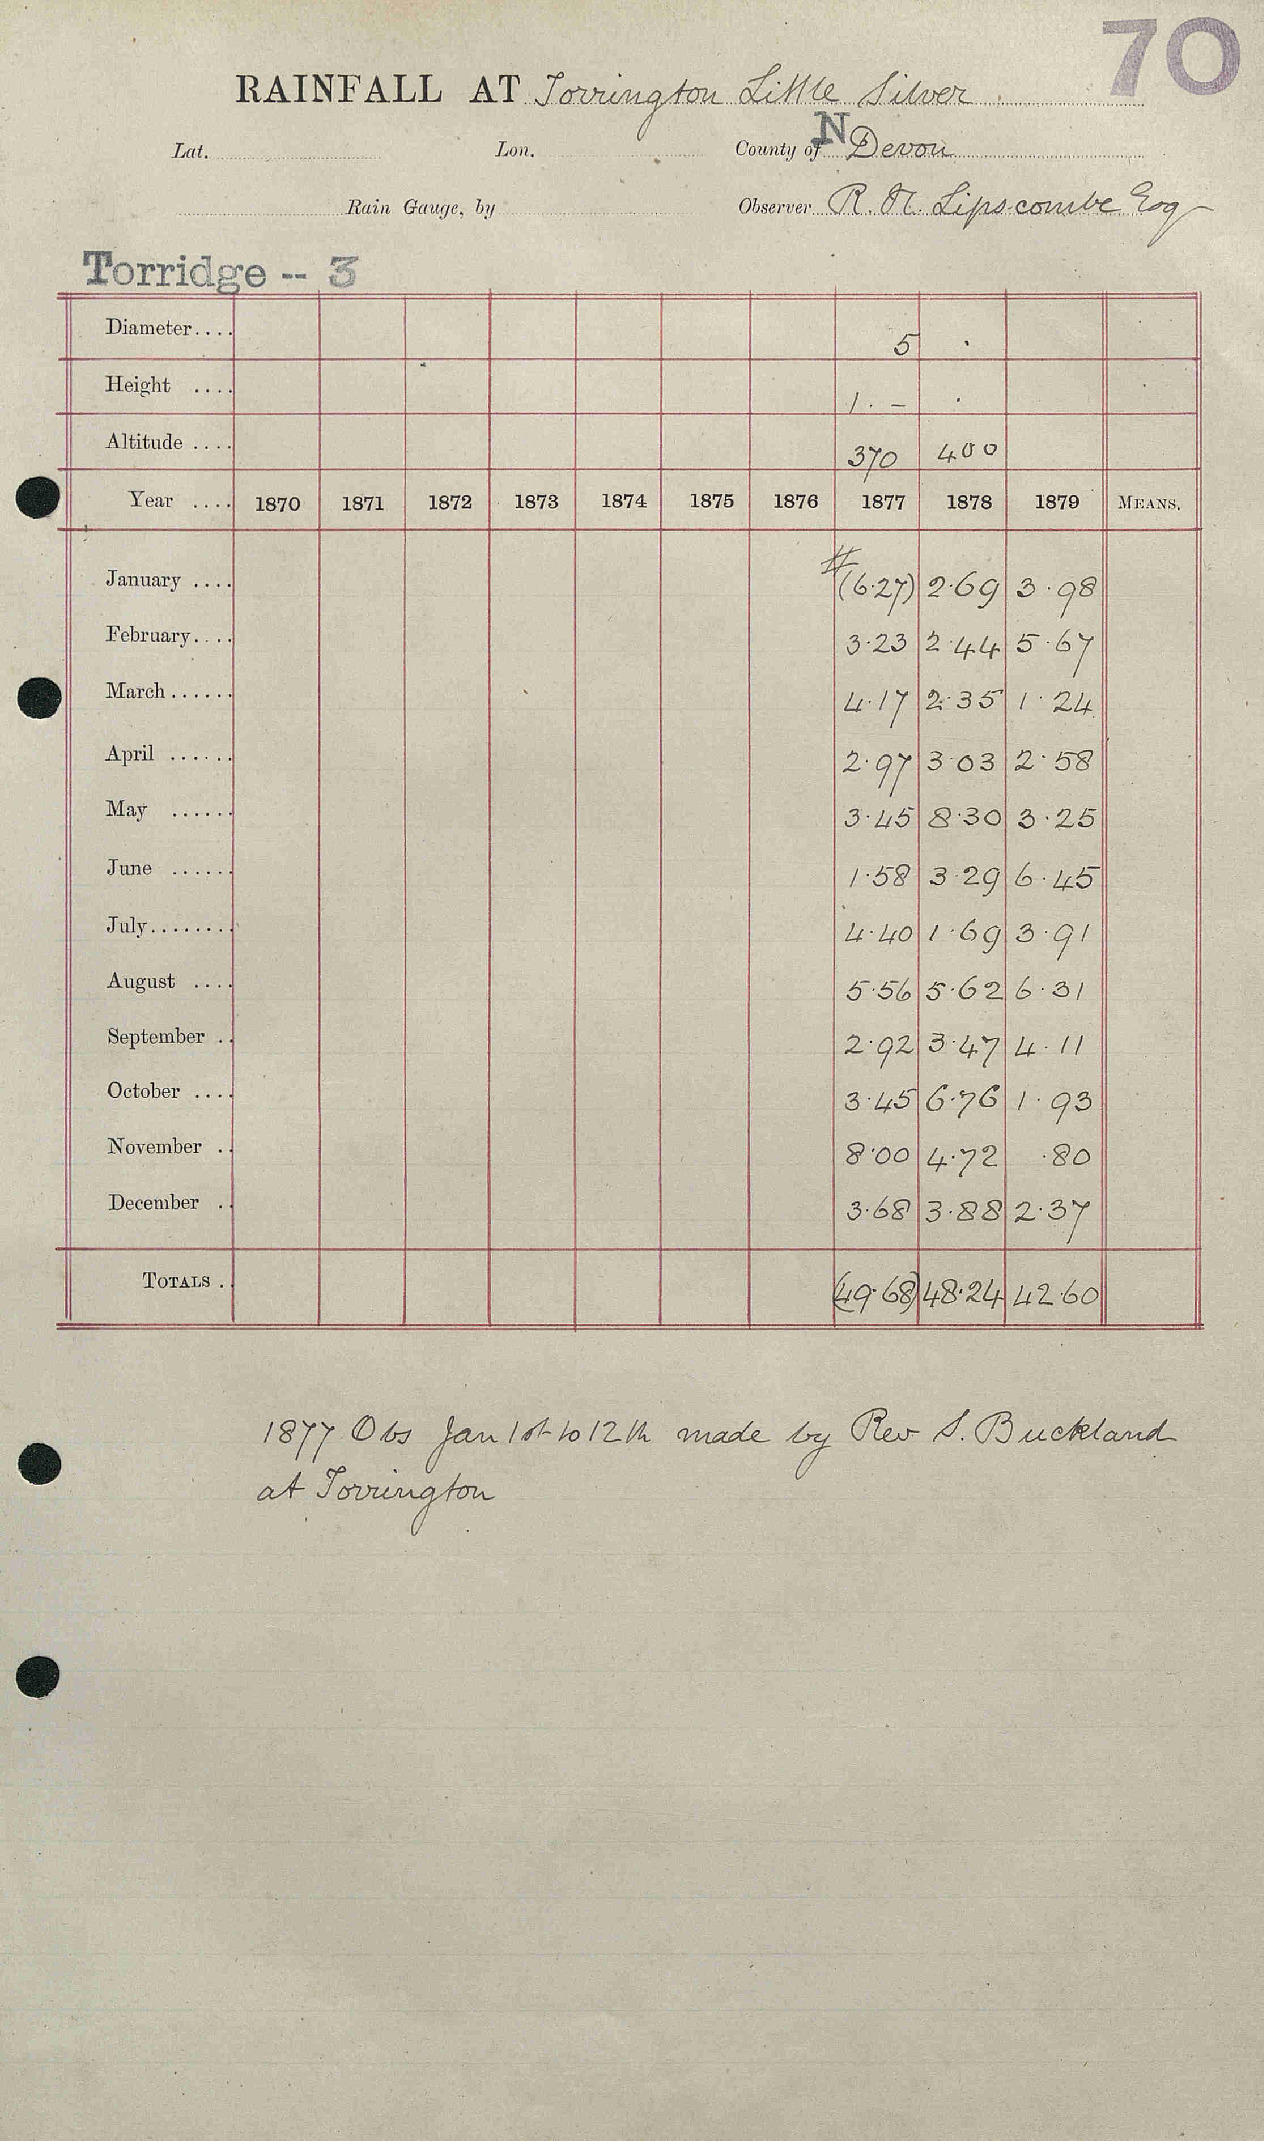 70
RAINFALL AT Torrington Little Silver
Lat. Lon. County of N Devon
Rain Gauge, by Observer R. H. Lipscombe Esq
Torridge -- 3
Diameter.... 5 .
Height .... 1. – .
Altitude .... 370 400
Year .... 1870 1871 1872 1873 1874 1875 1876 1877 1878 1879 MEANS.
January .... #(6.27) 2.69 3.98
February.... 3.23 2.44 5.67
March...... 4.17 2.35 1.24
April ...... 2.97 3.03 2.58
May ...... 3.45 8.30 3.25
June ...... 1.58 3.29 6.45
July........ 4.40 1.69 3.91
August .... 5.56 5.62 6.31
September .. 2.92 3.47 4.11
October .... 3.45 6.76 1.93
November .. 8.00 4.72 .80
December .. 3.68 3.88 2.37
TOTALS .. (49.68) 48.24 42.60
1877 Obs Jan 1st to 12th made by Rev S. Buckland
at Torrington